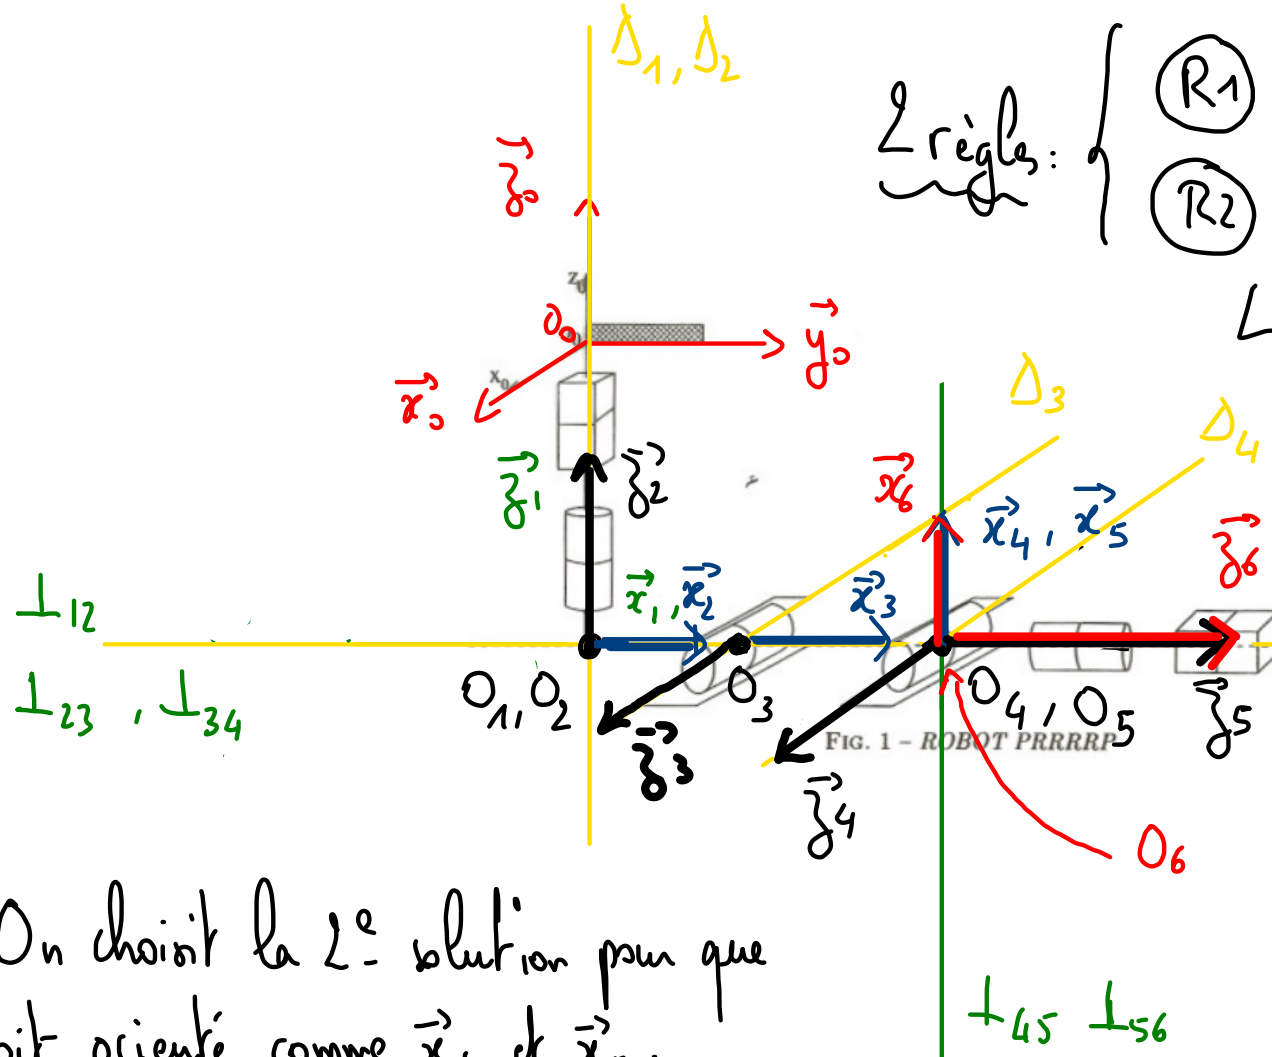 Δ₁, Δ₂
2 règles :
R1
R2
z⃗₀
z₀
O₀
y⃗₀
x₀
x⃗₀
Δ₃
Δ₄
z⃗₁
z⃗₂
x⃗₆
x⃗₄, x⃗₅
z⃗₆
⊥₁₂
x⃗₁, x⃗₂
x⃗₃
⊥₂₃, ⊥₃₄
O₁, O₂
O₃
O₄, O₅
z⃗₅
FIG. 1 – ROBOT PRRRRP
z⃗₃
z⃗₄
O₆
On choisit la 2e solution pour que
orienté comme et
⊥₄₅ ⊥₅₆